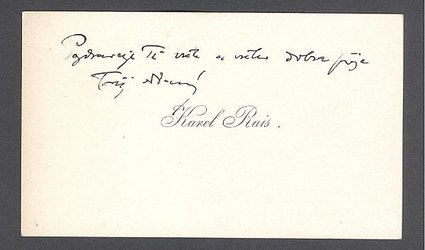 Pozdravuje Tě vřele a všeho dobra přeje
Tvůj
Karel Rais.